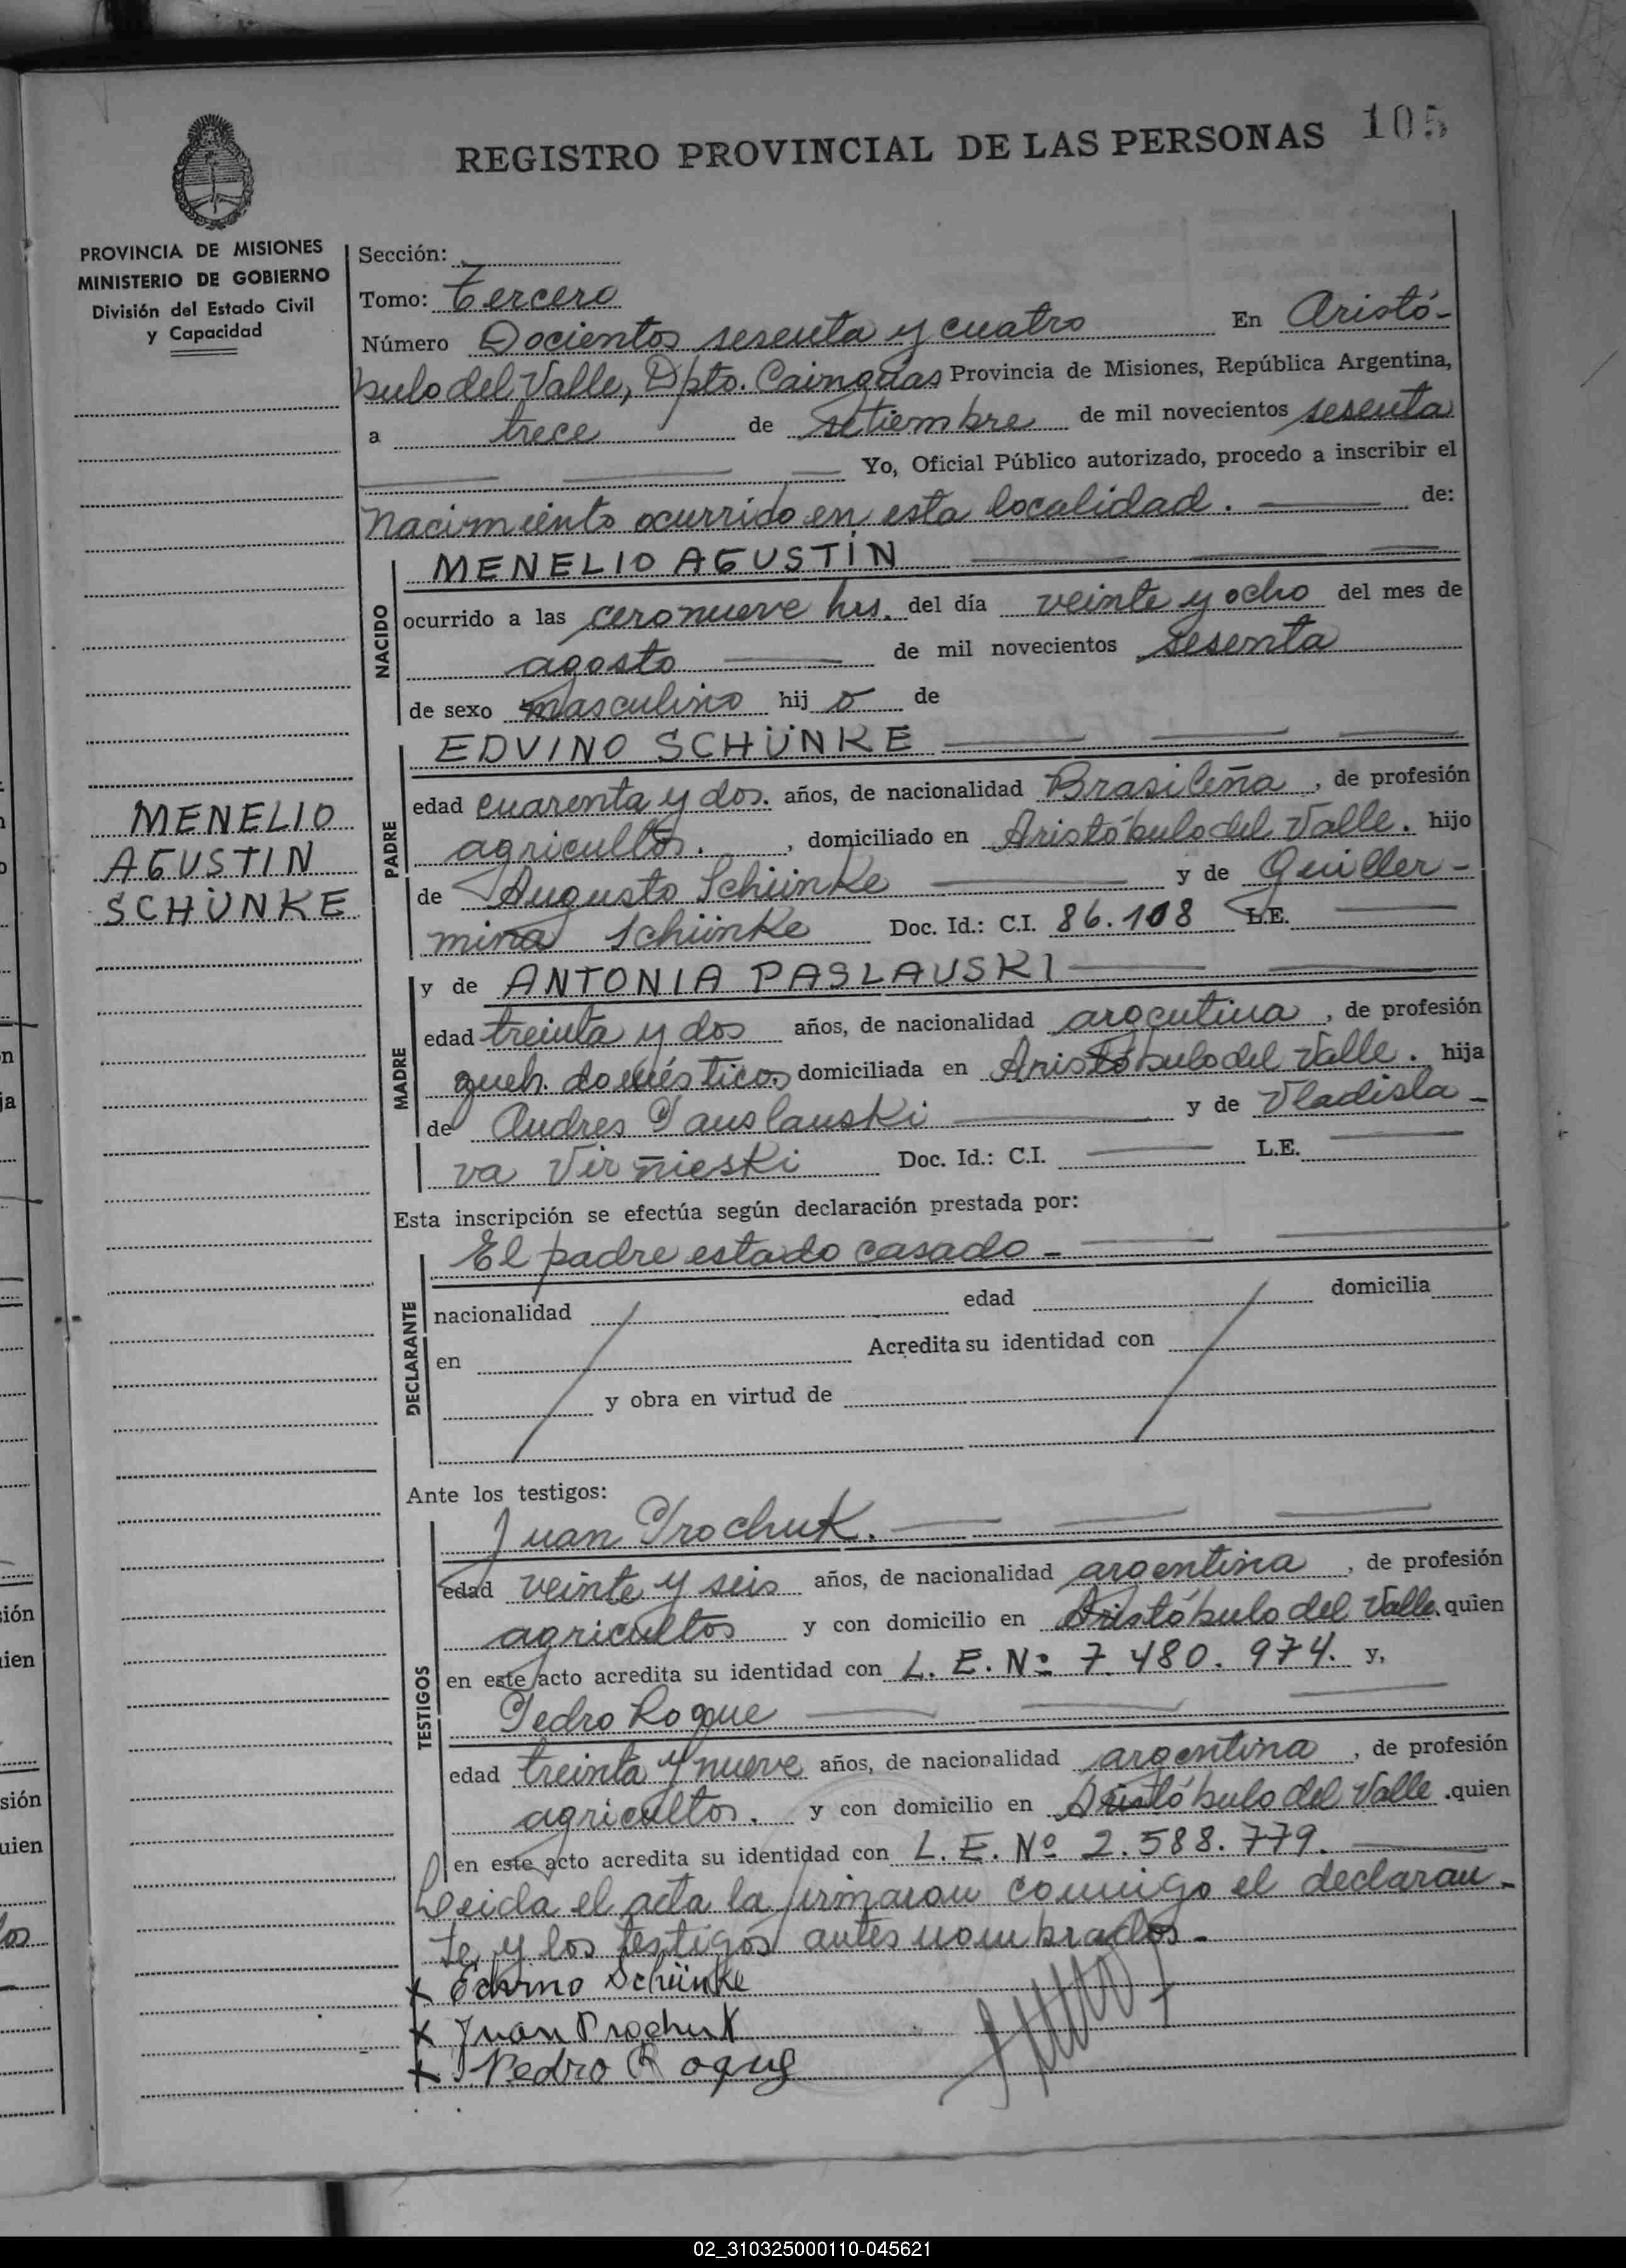 105
REGISTRO PROVINCIAL DE LAS PERSONAS
PROVINCIA DE MISIONES
MINISTERIO DE GOBIERNO
División del Estado Civil
y Capacidad
MENELIO
AGUSTIN
SCHÜNKE
Sección:
Tomo: Tercero
Número Docientos sesenta y cuatro En Aristó-
bulo del Valle, Dpto. Cainguas Provincia de Misiones, República Argentina,
a trece de setiembre de mil novecientos sesenta
Yo, Oficial Público autorizado, procedo a inscribir el
Nacimiento ocurrido en esta localidad. de:
NACIDO
MENELIO AGUSTIN
ocurrido a las cero nueve hrs. del día veinte y ocho del mes de
agosto de mil novecientos sesenta
de sexo masculino hij o de
PADRE
EDVINO SCHÜNKE
edad cuarenta y dos. años, de nacionalidad Brasileña, de profesión
agricultor., domiciliado en Aristóbulo del Valle. hijo
de Augusto Schünke y de Guiller-
mina Schünke Doc. Id.: C.I. 86.108 L.E.
MADRE
y de ANTONIA PASLAUSKI
edad treinta y dos años, de nacionalidad argentina, de profesión
queh. domésticos domiciliada en Aristóbulo del Valle. hija
de Andres Pauslauski y de Vladisla-
va Virñieski Doc. Id.: C.I. L.E.
Esta inscripción se efectúa según declaración prestada por:
DECLARANTE
El padre estado casado -
nacionalidad edad domicilia
en Acredita su identidad con
y obra en virtud de
Ante los testigos:
TESTIGOS
Juan Prochuk.
edad veinte y seis años, de nacionalidad argentina, de profesión
agricultor y con domicilio en Aristóbulo del Valle. quien
en este acto acredita su identidad con L. E. Nº 7.480.974. y,
Pedro Roque
edad treinta y nueve años, de nacionalidad argentina, de profesión
agricultor. y con domicilio en Aristóbulo del Valle. quien
en este acto acredita su identidad con L. E. Nº 2.588.779.
Leida el acta la firmaron conmigo el declaran-
te, y los testigos antes nombrados.-
x Edvino Schünke
x Juan Prochuk
x Pedro Roque
02_310325000110-045621